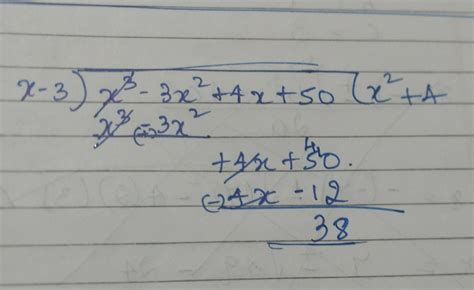 x-3) x³ - 3x² + 4x + 50 (x² + 4
x³ (-) - 3x²
+4x + 50.
(-) 4x - 12
38